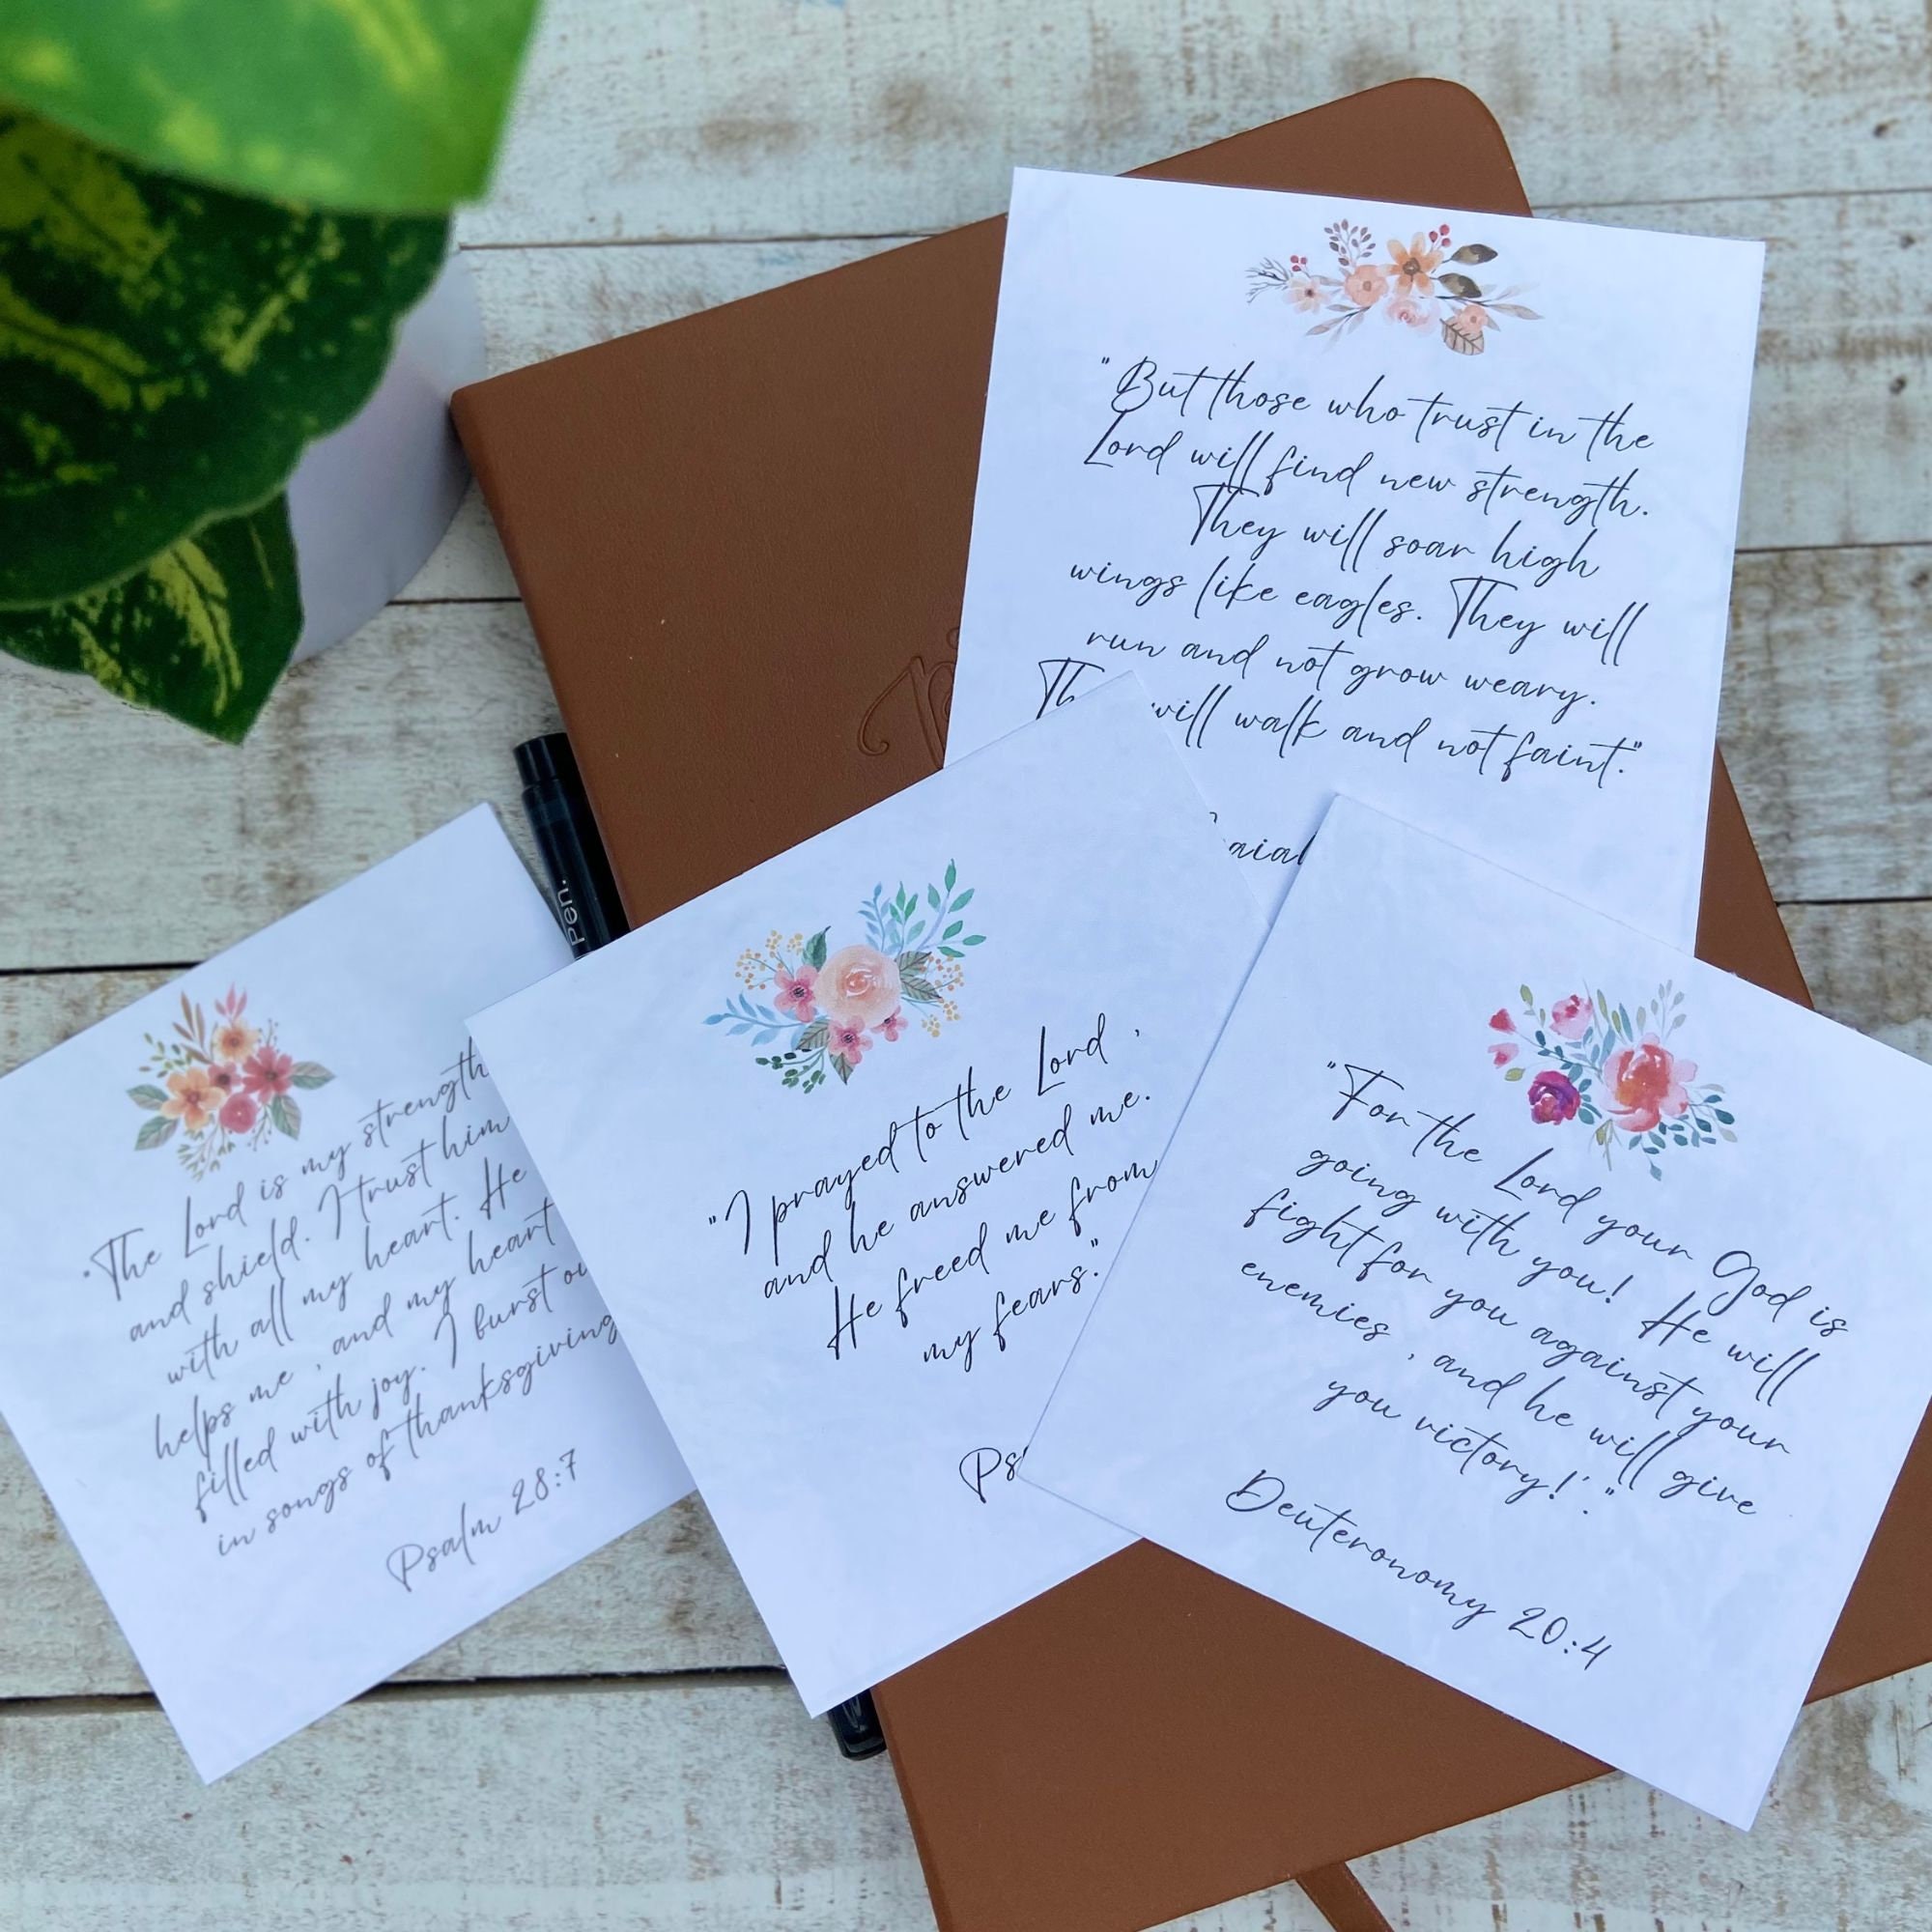 "But those who trust in the
Lord will find new strength.
They will soar high
wings like eagles. They will
run and not grow weary.
will walk and not faint."
"I prayed to the Lord,
and he answered me.
He freed me from
my fears."
Ps
"For the Lord your God is
going with you! He will
fight for you against your
enemies, and he will give
you victory!'."
Deuteronomy 20:4
"The Lord is my strength
and shield. I trust him
with all my heart. He
helps me, and my heart
filled with joy. I burst ou
in songs of thanksgiving
Psalm 28:7
Pen.